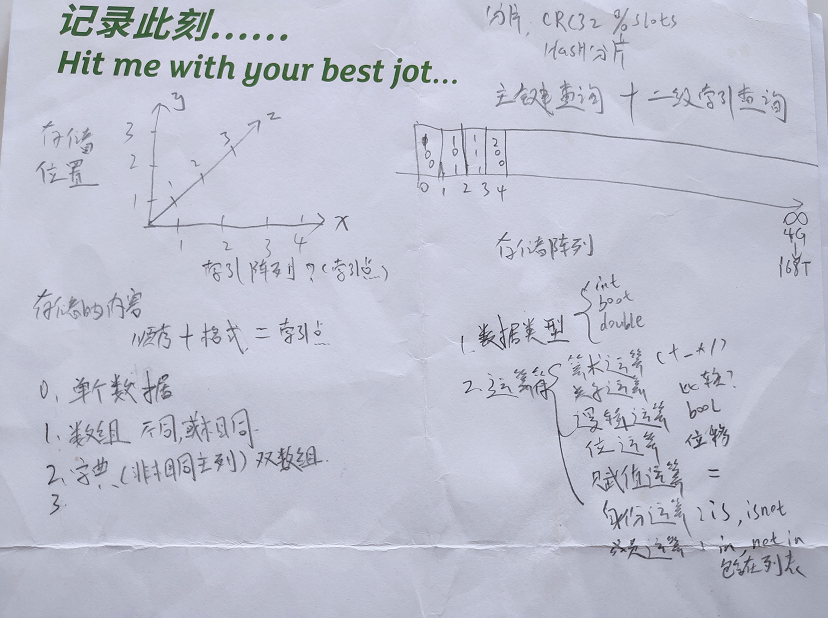 记录此刻......
Hit me with your best jot...
分片, CRC32 % slots
Hash分片
主键查询 + 二级索引查询
存储
位置
y
3
2
1
z
3
2
1
x
1 2 3 4
索引阵列?(索引点)
0 1 2 3 4
∞
4G
168T
存储阵列
存储的内容
顺序 + 格式 = 索引点
0. 单个数据
1. 数组 不同,或相同.
2. 字典 (非相同主列) 双数组.
3.
1. 数据类型
int
boot
double
2. 运算符
算术运算 (+-*/)
关于运算 比较?
逻辑运算 bool
位运算 位移
赋值运算 =
身份运算: is, isnot
成员运算: in, not in
包含在列表